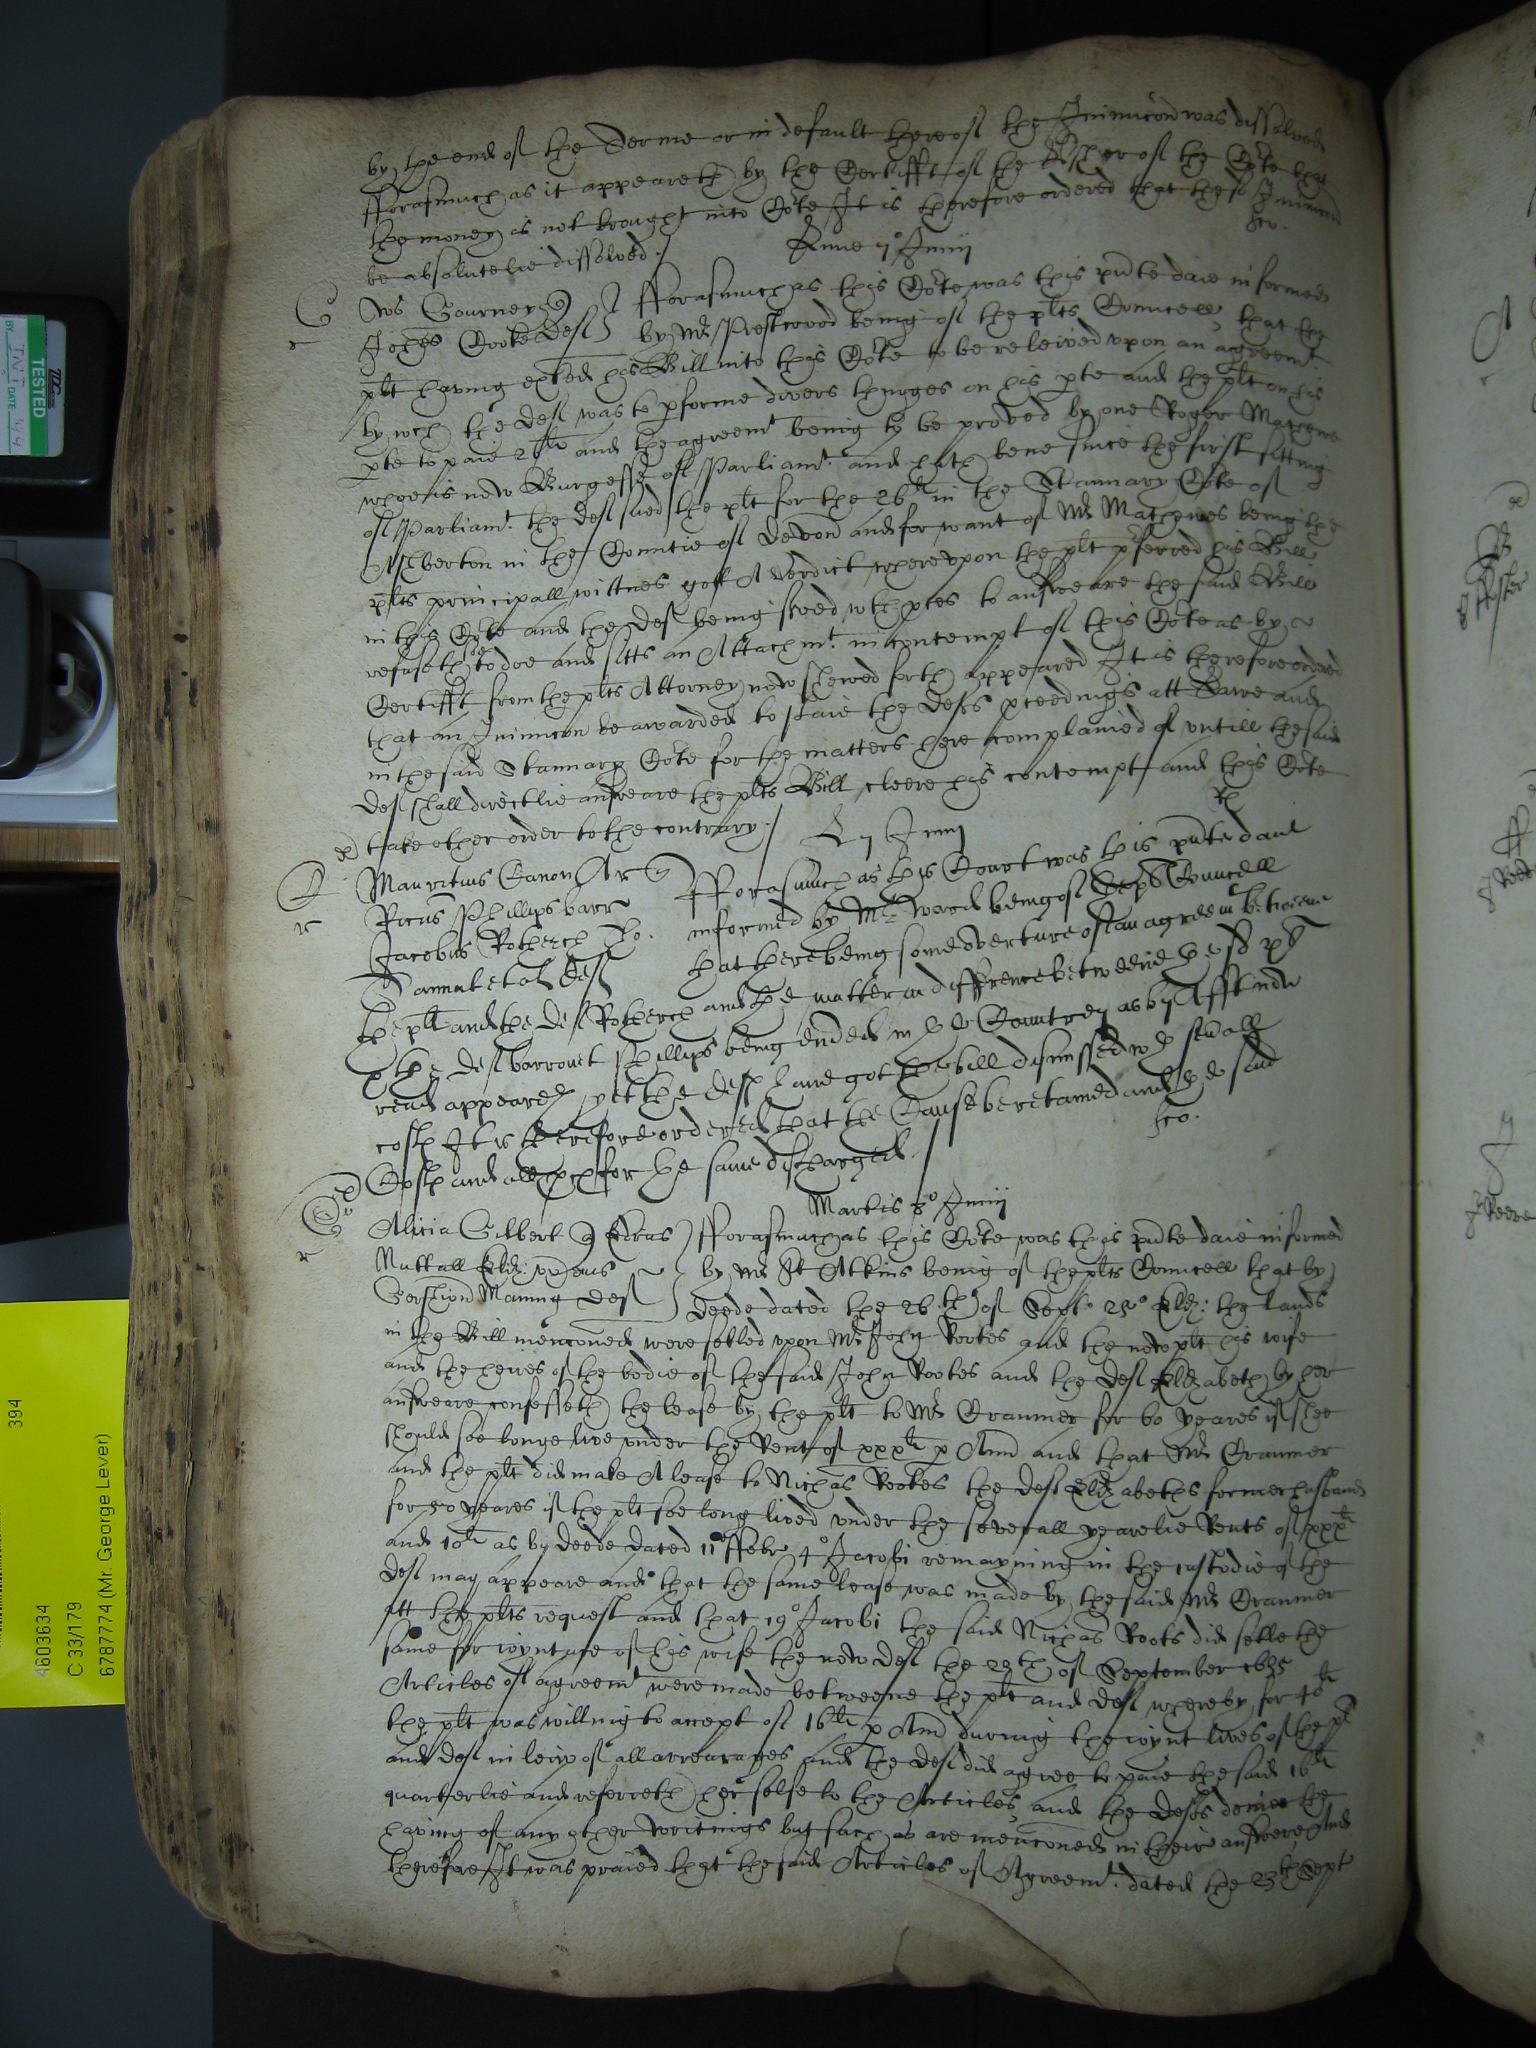 by the end of the Terme or in default thereof the Iniunccon was dissolved
fforasmuch as it appeareth by the Certifft of the Vsher of the Cote that
the money is not brought into Cote It is therefore ordered that the sd Iniunccon
be absolutelie dissolved /
Lune 7° Junij
Gourney
Johes Cooke Def
fforasmuch as this Cote was this pnte daie informed
by Mr Prestwood being of the plts Councell that the
plt having exhited his Bill into this Cote to be releived vpon an agreemt
by wch the Def was to pforme divers thinges on his pte and the plt on his
pte to paie 26li and the agreemt being to be proved by one Roger Mathewe
whoe is now Burgesse of Parliamt. and hath bene since the first sitting
of Parliamt. the Def sued the plt for the 26li in the Stannary Cote of
Ashberton in the Countie of Devon and for want of Mr Mathewes being the
plts principall wittnes gott A verdict, whervpon the plt pferred his Bill
in this Cote and the Def being served wth pces to answeare the said Bill
refuseth soe to doe and sitts an Attachmt. in contempt of this Cote as by a
Certifft from the plts Attorney now shewed forth appeared It is therefore ordered
that an Iniunccon be awarded to staie the Defts pceedings att Lawe and
in the said Stannary Cote for the matters here complained of vntill the said
Def shall directlie answeare the plts Bill, cleere his contempt and this Cote
take other order to the contrary /
L 7 Junij
Mauritius Canon Ar
Ricus Phillips barr
Jacobus Rotherch
Def
fforasmuch as this Court was this pnte daie
informed by Mr Ward being of Councell
that there being some overture of an agreemt betweene
the plt and the Def Rotherch and the matter in difference betweene the sd plt
the Def barronet Phillips being ended in the Countrey as by Afft now
read appeared, yet the Defts have gott the bill dismissed wth seuall
costs It is therefore ordered that the Cause be retained and the said
Costs and all pces for the same discharged /
Martis 8° Junij
Alicia Gilbert
fforasmuch as this Cote was this pnte daie informed
by Mr St Atkins being of the plts Councell that by
Maning Def
Deede dated the 26th of Sept° 25° Eliz: the lands
in the Bill menconed were setled vpon Mr John Rootes and the now plt his wife
and the heires of the bodie of the said John Rootes and the Def Elizabeth by her
answeare confesseth the lease by the plt to Mr Cranmer for 60 yeares if shee
should soe longe live vnder the Rent of xxxli p Ann and that Mr Cranmer
and the plt did make A lease to Nichas Rootes the Def Elizabeths former husband
for 50 yeares if the plt soe long lived vnder the severall yearelie Rents of xxxli
and 10li as by Deede dated 11° ffebr 4° Jacobi remayning in the custodie of the
Def may appeare and that the same lease was made by the said Mr Cranmer
att the plts request and that 19° Jacobi the said Nichas Roots did settle the
same for ioynture of his wife the now Def the 23th of September 1635
Articles of agreemt were made betweene the plt and Def whereby for 40li
the plt was willing to accept of 16li p Ann during the ioynt lives of the plt
and Def in leiw of all arrearages and the Def did agree to paie the said 16li
quarterlie and referreth her selfe to the Articles, and the Defts denie the
having of any other writings but such as are menconed in theire answere And
therefore It was praied that the said Articles of Agreemt. dated the 23th Sept
TESTED
DATE
4603634
394
C 33/179
6787774 (Mr. George Lever)